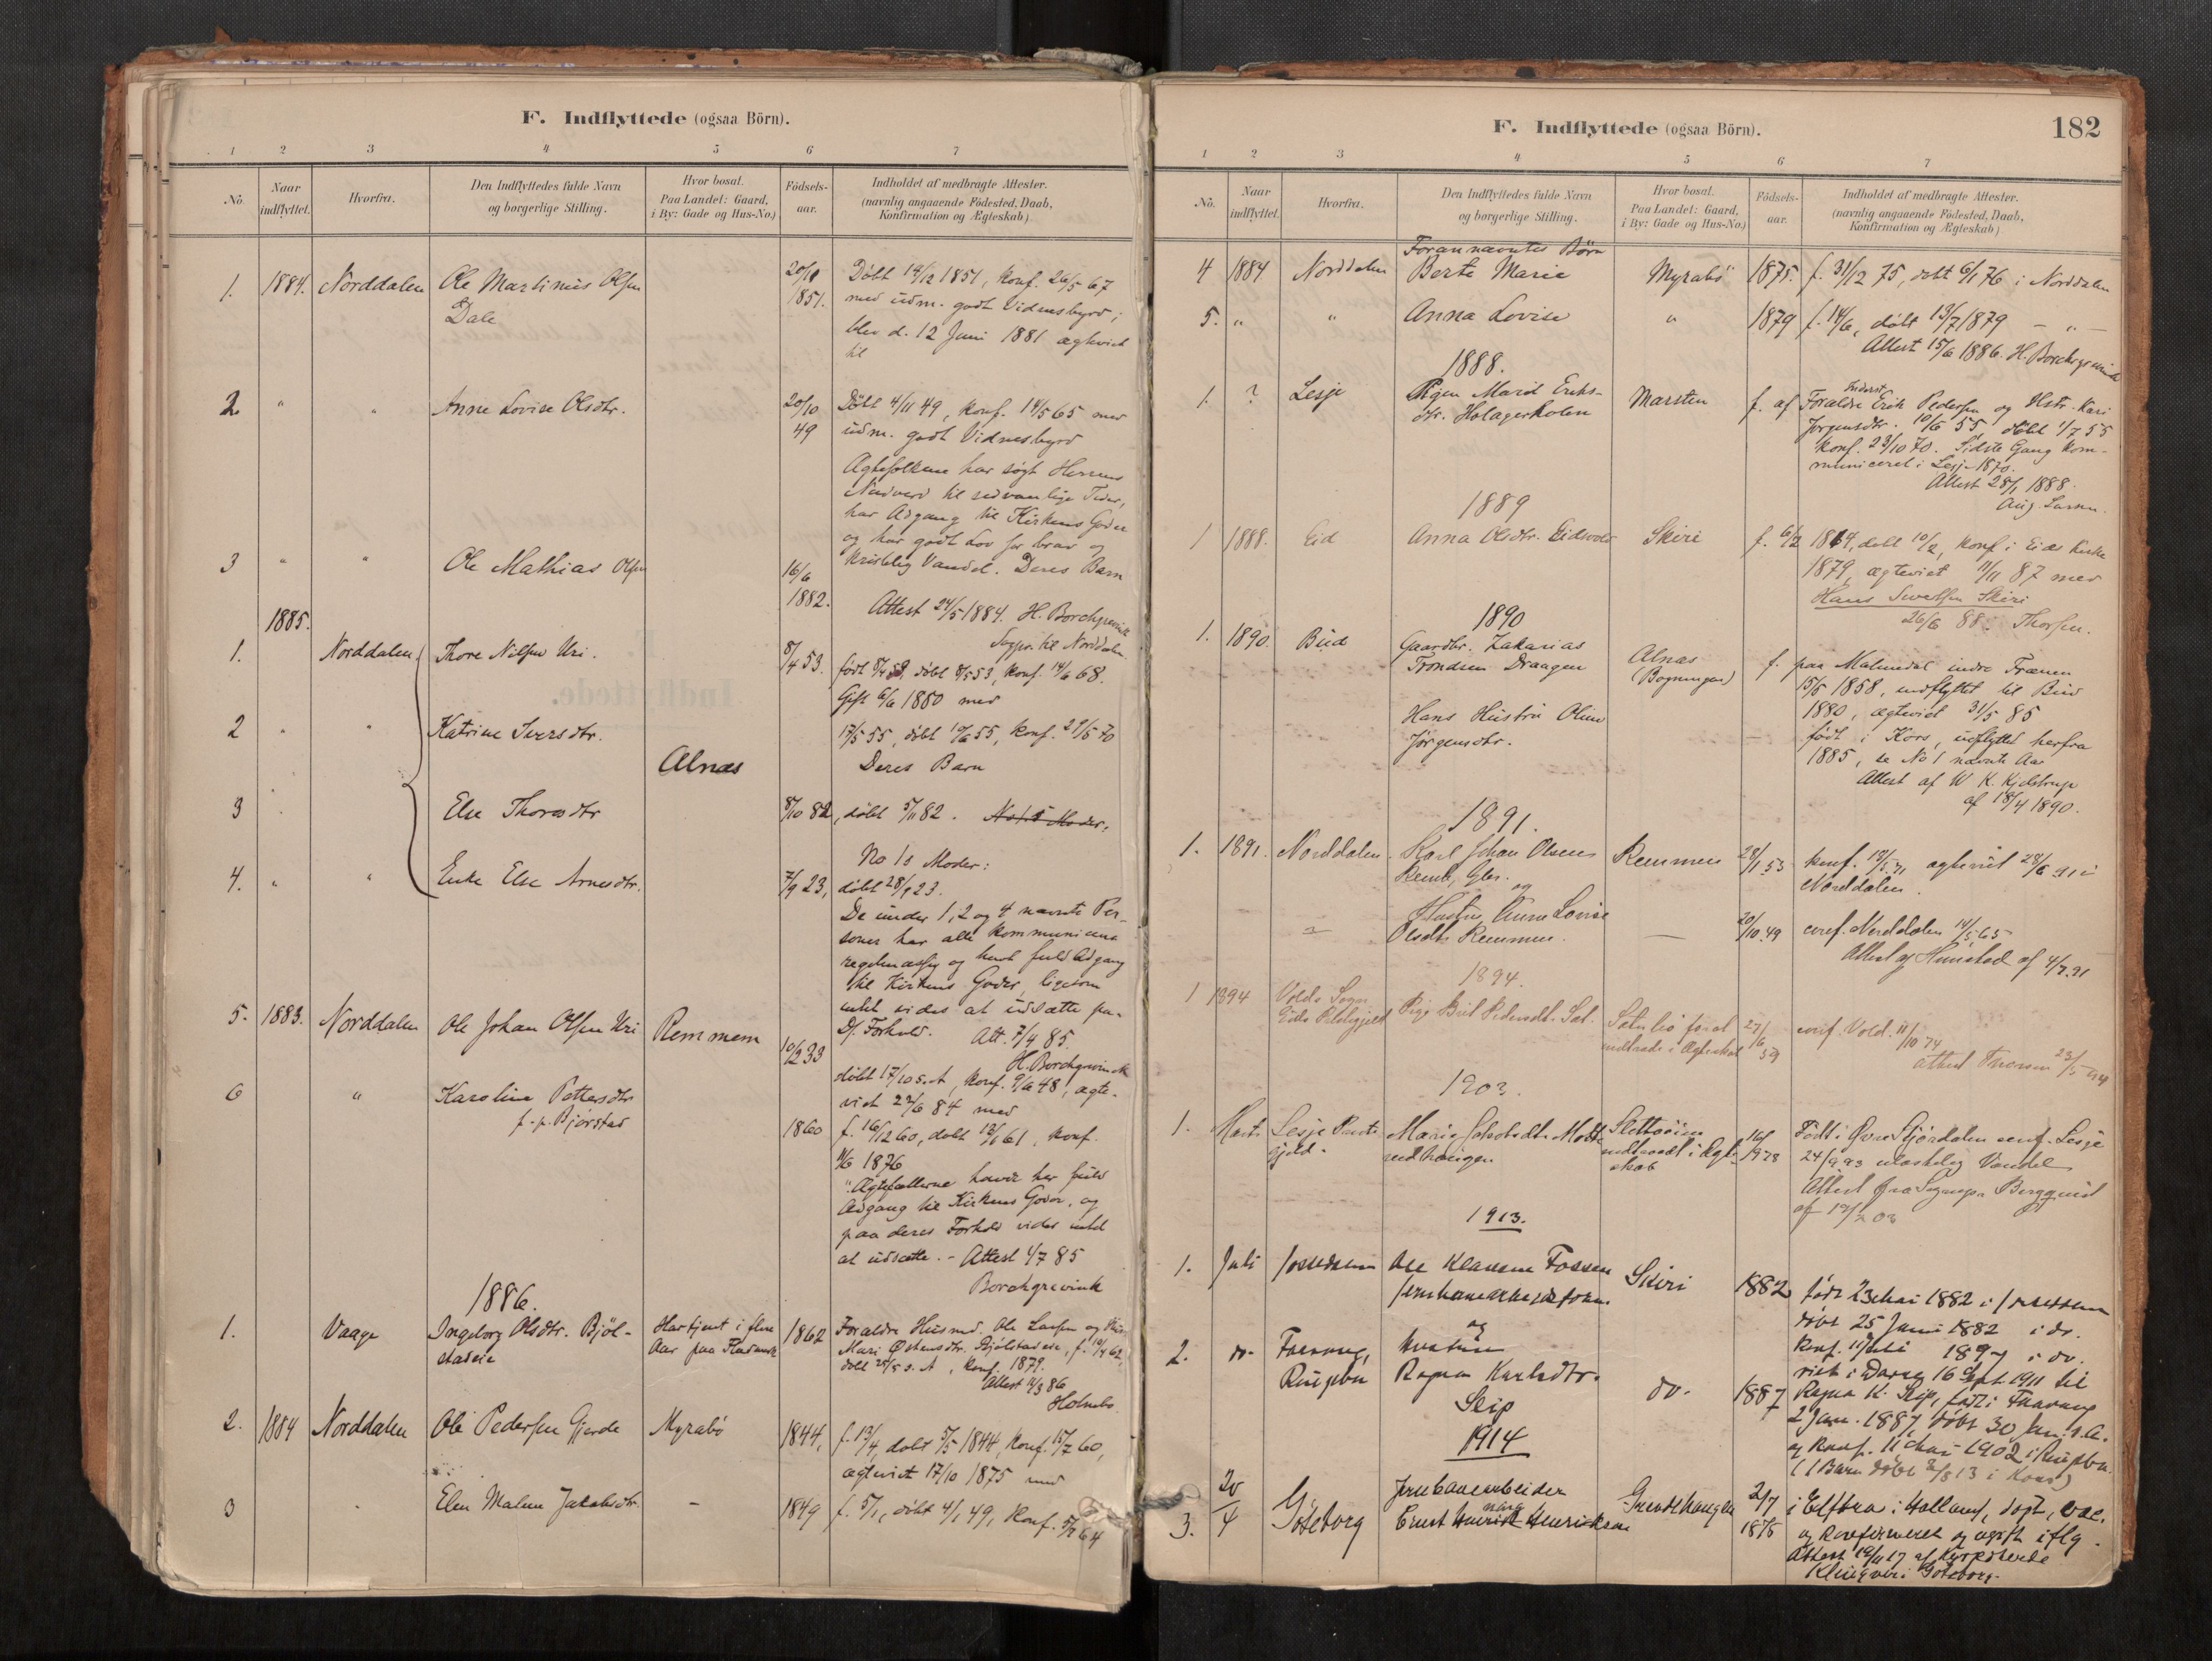 F. Indflyttede (ogsaa Börn).
1 2 3 4 5 6 7
No. Naar indflyttet. Hvorfra. Den Indflyttedes fulde Navn og borgerlige Stilling. Hvor bosat. Paa Landet: Gaard, i By: Gade og Hus-No.) Födsels-aar. Indholdet af medbragte Attester. (navnlig angaaende Födested, Daab, Konfirmation og Ægteskab).
1. 1884. Norddalen Ole Martinus Olsen
Dale
1851.
Døbt 14/12 1851, Konf. 26/5 67
med udm. godt Vidnesbyrd;
blev d. 12 Juni 1881 ægteviet
til
2 " " Anne Lovise Olsdtr. 20/10
49
Døbt 4/11 49, Konf. 14/5 65 med
udm. godt Vidnesbyrd
Ægtefolkene har søgt Herrens
Nadverd til sedvanlige Tider,
har Adgang til Kirkens Goder
og har godt Lov for brav og
Kristelig Vandel. Deres Barn
3 " " Ole Mathias Olsen 16/6
1882.
Attest 24/5 1884. H. Borchgrevink
Sogpr. til Norddalen.
1885.
1. Norddalen Thore Nilsen Uri. 8/4 53.
døbt 8/5 53, Konf. 14/6 68.
Gift 6/6 1880 med
2 " " Katrine Iversdtr.
17/5 55, døbt 10/6 55, Konf. 29/5 70
Alnæs
Deres Barn
3 Else Thoresdtr 8/10 82, døbt 5/11 82. No 1s Moder,
No 1s Moder:
4. " " Enke Else Arnesdtr. 7/9 23, døbt 28/9 23.
De under 1, 2 og 4 nævnte Per-
soner har alle kommuniceret
regelmæssig og havt fuld Adgang
til Kirkens Goder, ligesom
intet vides at udsætte paa
D/s Forhold. Att. 7/4 85.
H. Borchgrevink
5. 1883. Norddalen Ole Johan Olsen Uri Remmem 10/2 33
døbt 17/10 s. A, Konf. 9/6 48, ægte-
viet 22/6 84 med
6 " Karoline Pettersdtr
f. p. Bjørstad
1860 f. 16/12 60, døbt 13/1 61, Konf.
11/6 1876
"Ægtefællerne havde her fuld
Adgang til Kirkens Goder, og
paa deres Forhold vides intet
at udsætte. - Attest 4/7 85
Borchgrevink
1886.
1. Vaage Ingeborg Olsdtr. Bjöl-
stadeie
Har tjent i flere
Aar paa Flatmark
1862 Foraldre Husmd. Ole Larsen og
Mari Østensdtr. Bjölstadeie, f. 10/4 62,
døbt 25/5 s. A, Konf. 1879.
Attest 11/3 86
Holmbo.
2. 1884 Norddalen Ole Pedersen Gjerde Myrabö 1844, f. 13/4, døbt 5/5 1844, Konf. 15/7 60,
ægteviet 17/10 1875 med
3 Elen Malene Jakobsdtr. - 1849 f. 5/1, døbt 4/1 49, Konf. 5/7 64
182
F. Indflyttede (ogsaa Börn).
1 2 3 4 5 6 7
No. Naar indflyttet. Hvorfra. Den Indflyttedes fulde Navn og borgerlige Stilling. Hvor bosat. Paa Landet: Gaard, i By: Gade og Hus-No.) Födsels-aar. Indholdet af medbragte Attester. (navnlig angaaende Födested, Daab, Konfirmation og Ægteskab)
Forannævntes Börn
4 1884 Norddalen Berte Marie Myrabö 1875. f. 31/12 75, døbt 6/1 76 i Norddalen
5. " " Anna Lovise " 1879 f. 14/6, døbt 13/7 1879 - " -
Attest 15/6 1886. H. Borchgrevink
1888.
1. ? Lesje Pigen Marid Eriks-
dtr. Holagerholen
Marsten f. af Foraldre Erik Pedersen og Hstr. Kari
Jørgensdtr. 10/6 55 døbt 1/7 55
Konf. 23/10 70. Sidste Gang kom-
municeret i Lesje 1870.
Attest 28/1 1888.
Aug. Larsen.
1889
1 1888. Eid Anna Olsdtr. Eidsvold Skiri f. 6/2 1864, døbt 10/2, Konf i Eids Kirke
1879, ægteviet 11/11 87 med
Hans Sivertsen Skiri
26/6 88. Thorsen.
1890
1. 1890. Bud Gaardbr. Zakarias
Trondsen Draagen
Alnæs
(Bogningen)
f. paa Malmedal indre Frænen
15/5 1858, indflyttet til Bud
1880, ægteviet 31/5 85
Hans Hustru Oline
Jørgensdtr.
født i Kors, udflyttet herfra
1885, se No 1 nævnte Aar
Attest af W K. Kjelstrup
af 18/4 1890.
1891.
1. 1891. Norddalen Karl Johan Olsens
Remb, Gbr.
og
Remmen 28/1 53 Konf. 18/5 71 ægteviet 28/6 91 i
Norddalen.
Hustru Anne Lovise
Olsdtr. Remmen.
20/10 49 conf. Norddalen 14/5 65
Attest af Hunstad af 4/7 91
1894.
1 1894 Volds Sogn
Eids Præstegjeld
Pige Brit Pedersdtr. Sæt.
Sæterbø for at
indtræde i Ægteskab
27/6 59
conf. Vold. 11/10 74
attest Thorsen 23/5 94
1903.
1. Marts Lesje Præste-
gjeld.
Marie Jakobsdtr. Motte
Slettaöien
indtraadt i Ægte-
skab
16/1 1978
Født i Øvre Stjørdalen conf. Lesje
24/9 93 ulastelig Vandel
Attest fra Sognepr. Bergquist
af 12/3 03
1913.
1. Juli Jossedalen Ole Klausen Fossen
Skiri 1882 født 23 Mai 1882 i
døbt 25 Juni 1882 i do.
Konf. 11 Juli 1897 i do.
viet i 16 Sept. 1911 til
og
2. do Faavang,
Ringebu
Hustru
Ragna Karlsdtr.
Skip
do. 1887 Ragna K. Skip, født i Faavang
2 Jan. 1887, døbt 30 Jan. s. A.
og Konf. 11 Mai 1902 i Ringebu.
(1 Barn døbt 3/8 13 i Kors)
1914
20
3. 4 Göteborg Jernbanearbeider
Ernst Henrik Henriksen
Grendehaugen 2/7
1878
i Elfbra i Halland, døpt, vac.
og konfirmeret og ugift iflg.
Attest 19/11 17 af Kyrkoherde
Klingver i Göteborg.